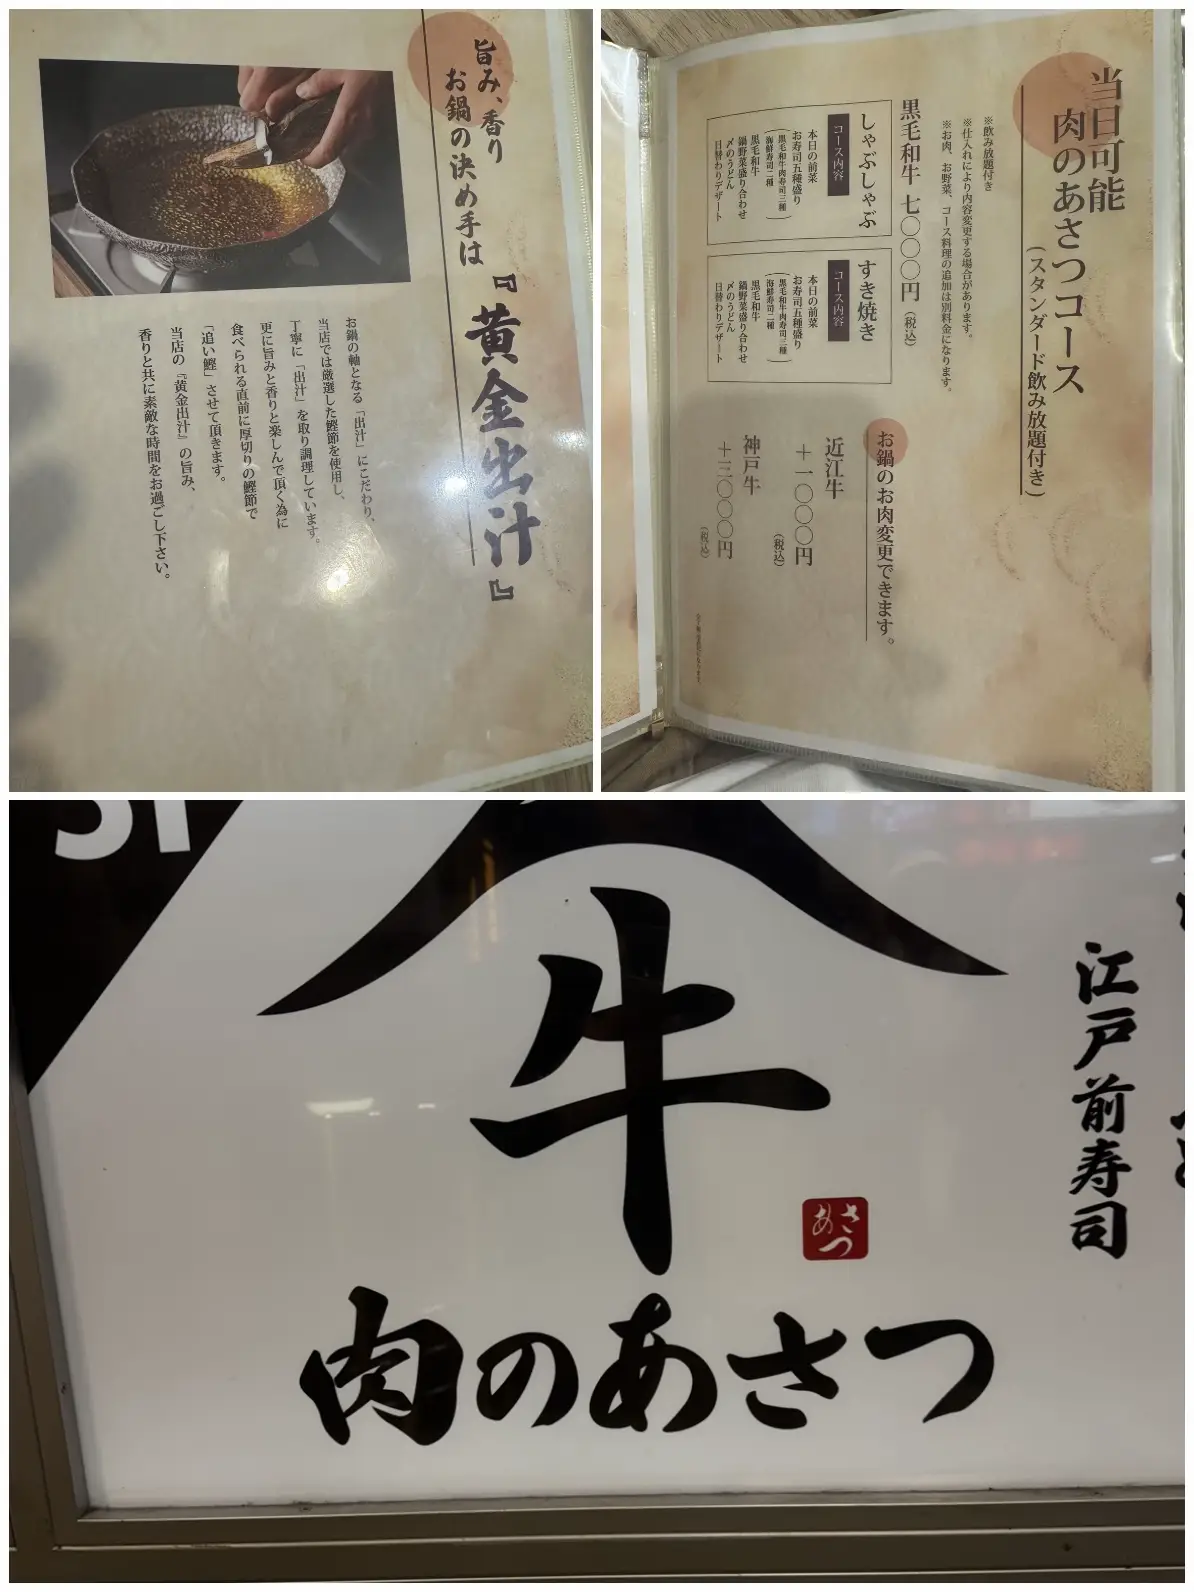 旨み、香り
お鍋の決め手は
『黄金出汁』
お鍋の軸となる「出汁」にこだわり、
当店では厳選した鰹節を使用し、
丁寧に「出汁」を取り調理しています。
更に旨みと香りと楽しんで頂く為に
食べられる直前に厚切りの鰹節で
「追い鰹」させて頂きます。
当店の『黄金出汁』の旨み、
香りと共に素敵な時間をお過ごし下さい。
当日可能
肉のあさつコース
(スタンダード飲み放題付き)
※飲み放題付き
※仕入れにより内容変更する場合があります。
※お肉、お野菜、コース料理の追加は別料金になります。
黒毛和牛 七〇〇〇円(税込)
しゃぶしゃぶ
コース内容
本日の前菜
お寿司五種盛り
(黒毛和牛肉寿司三種
海鮮寿司二種)
黒毛和牛
鍋野菜盛り合わせ
〆のうどん
日替わりデザート
すき焼き
コース内容
本日の前菜
お寿司五種盛り
(黒毛和牛肉寿司三種
海鮮寿司二種)
黒毛和牛
鍋野菜盛り合わせ
〆のうどん
日替わりデザート
お鍋のお肉変更できます。
近江牛
+一〇〇〇円
(税込)
神戸牛
+三〇〇〇円
(税込)
江戸前寿司
牛
あさつ
肉のあさつ